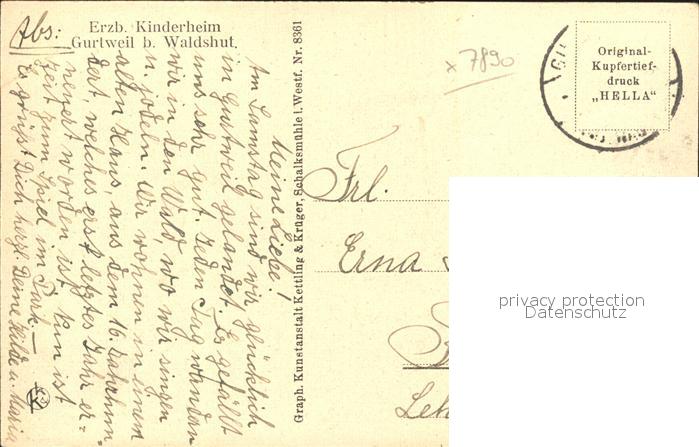 Abs:
Erzb. Kinderheim
Gurtweil b. Waldshut.
Meine Liebe!
Am Samstag sind wir glücklich
in Gurtweil gelandet. Es gefällt
uns sehr gut. Jeden Tag wandern
wir in den Wald, wo wir singen
u. jodeln. Wir wohnen in einem
alten Haus, aus dem 16. Jahrhun
dert, welches erst letztes Jahr er=
neuert worden ist. Nun ist
Zeit zum Spiel im Park.—
Es grüsst Dich herzl. Deine Hilde u. Maria
Graph. Kunstanstalt Kettling & Krüger, Schalksmühle i. Westf. Nr. 8361
x 7890
Original-
Kupfertief-
druck
„HELLA“
Frl.
Erna
privacy protection
Datenschutz